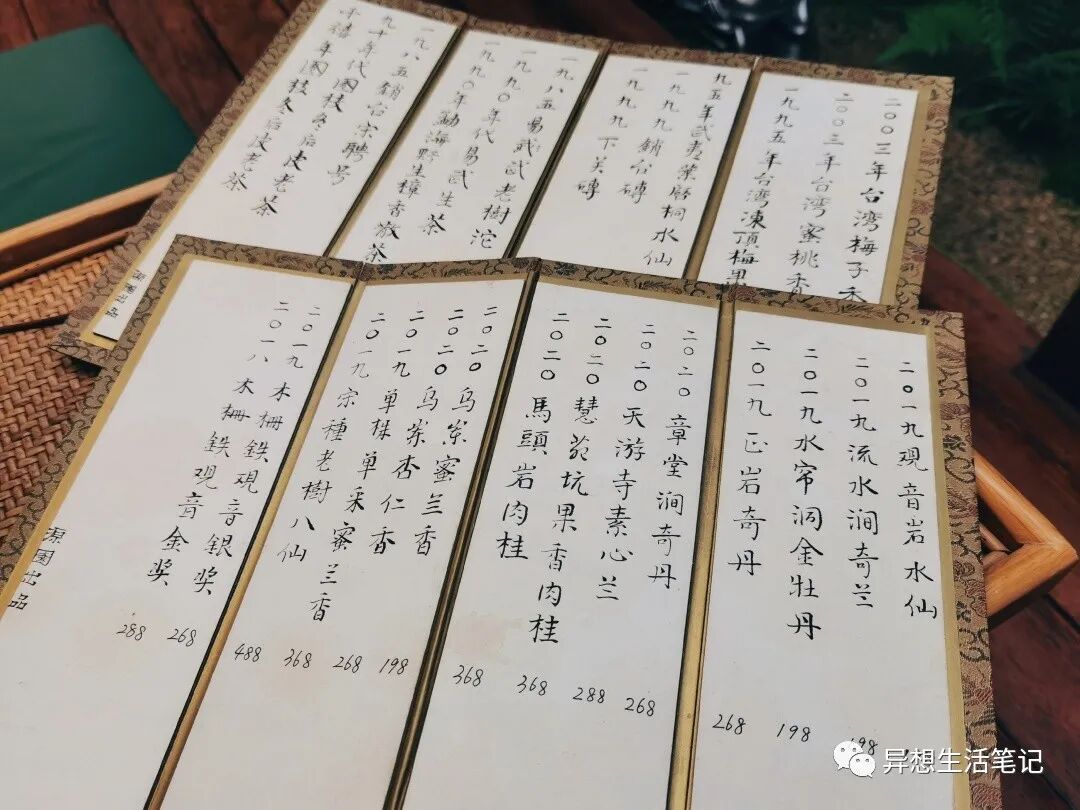 二〇〇三年台湾梅子
二〇〇三年台湾蜜桃香
一九九五年台湾凍頂梅果
九五年武夷 桐水仙
一九九九鋪台磚
一九九九下关磚
一九八五易武武老樹沱
一九九〇年代易武生茶
一九九〇年勐海野生樟香散茶
一九八五鋪台宋聘号
九十年代 枝冬后皮老茶
千禧年 枝冬后皮老茶
二〇一九观音岩水仙
二〇一九流水涧奇兰 198
二〇一九水帘洞金牡丹 198
二〇一九正岩奇丹 268
二〇二〇章堂涧奇丹 268
二〇二〇天游寺素心兰 288
二〇二〇慧苑坑果香肉桂 368
二〇二〇馬頭岩肉桂 368
二〇二〇乌岽蜜兰香 198
二〇二〇乌岽杏仁香 268
二〇一九单株单采蜜兰香 368
二〇一九宗種老樹八仙 488
二〇一九木柵鉄观音銀奖 268
二〇一八木柵鉄观音金奖 288
出品
异想生活笔记